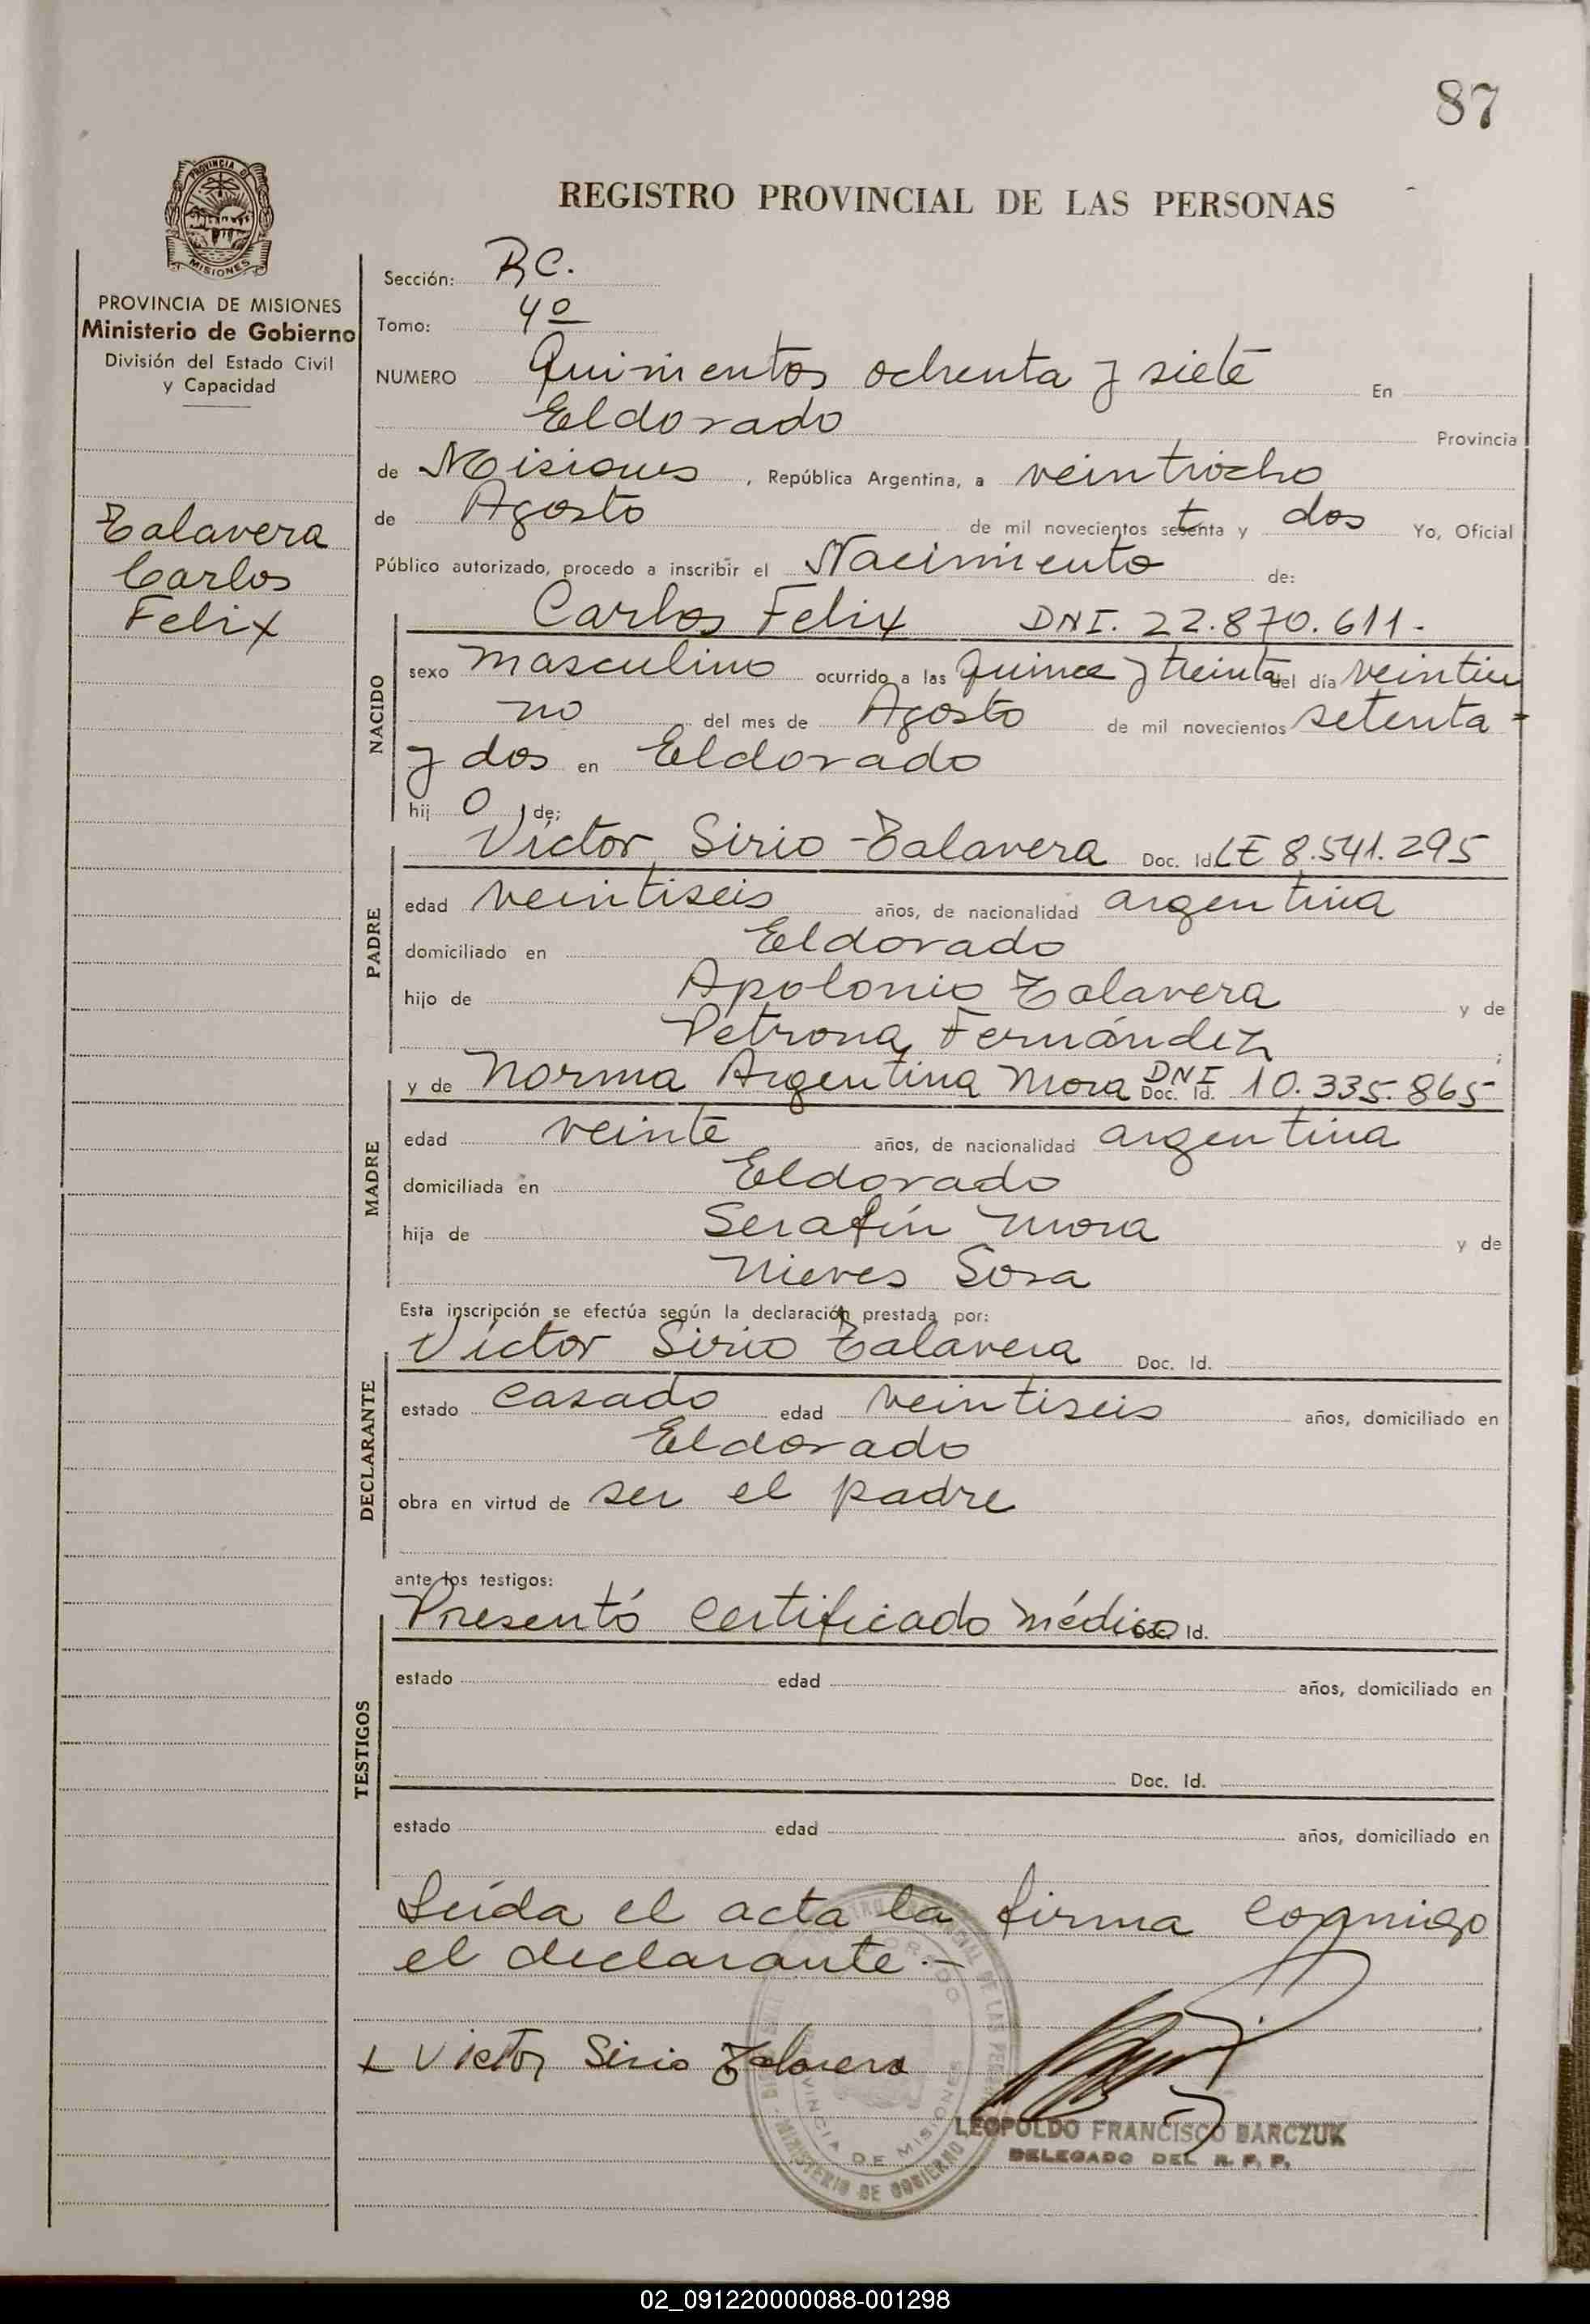 87
PROVINCIA DE
MISIONES
REGISTRO PROVINCIAL DE LAS PERSONAS
PROVINCIA DE MISIONES
Ministerio de Gobierno
División del Estado Civil
y Capacidad
Talavera
Carlos
Felix
Sección: RC.
Tomo: 4º
NUMERO Quinientos ochenta y siete En
Eldorado Provincia
de Misiones, República Argentina, a veintiocho
de Agosto de mil novecientos setenta y dos Yo, Oficial
Público autorizado, procedo a inscribir el Nacimiento de:
NACIDO
Carlos Felix DNI. 22.870.611.-
sexo masculino ocurrido a las quince y treinta del día veintiu
no del mes de Agosto de mil novecientos setenta -
y dos en Eldorado
hij o de;
PADRE
Víctor Sirio Talavera Doc. Id. LE 8.541.295
edad veintiseis años, de nacionalidad argentina
domiciliado en Eldorado
hijo de Apolonio Talavera y de
Petrona Fernández ;
MADRE
y de Norma Argentina Mora Doc. Id. DNI 10.335.865
edad veinte años, de nacionalidad argentina
domiciliada en Eldorado
hija de Serafín Mora y de
Nieves Sosa
Esta inscripción se efectúa según la declaración prestada por:
DECLARANTE
Víctor Sirio Talavera Doc. Id.
estado casado edad veintiseis años, domiciliado en
Eldorado
obra en virtud de ser el padre
ante los testigos:
TESTIGOS
Presentó certificado médico Doc. Id.
estado edad años, domiciliado en
Doc. Id.
estado edad años, domiciliado en
Leída el acta la firma conmigo
el declarante.-
x Victor Sirio Talavera
LEOPOLDO FRANCISCO BARCZUK
DELEGADO DEL R. P. P.
PROVINCIA DE MISIONES
MINISTERIO DE GOBIERNO
02_091220000088-001298